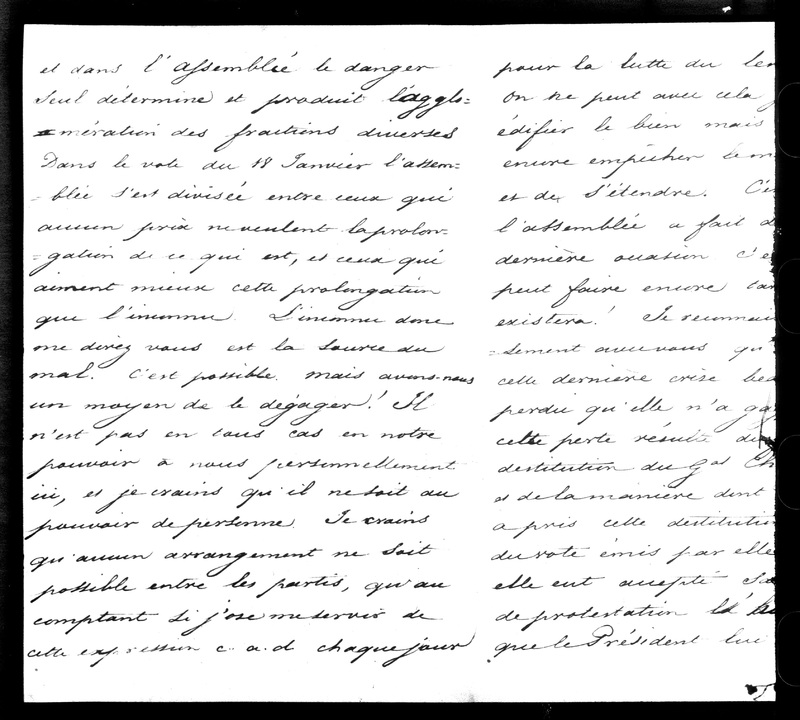 et dans l'Assemblée le danger
seul détermine et produit l'agglo-
=mération des fractions diverses
Dans le vote du 18 Janvier l'assem=
=blée s'est divisée entre ceux qui
aucun prix ne veulent la prolon=
=gation de ce qui est, et ceux qui
aiment mieux cette prolongation
que l'inconnu. L'inconnu donc
me direz vous est la source du
mal. C'est possible, mais avons-nous
un moyen de le dégager! Il
n'est pas en tous cas en notre
pouvoir à nous personnellement
ici, et je crains qu'il ne soit au
pouvoir de personne. Je crains
qu'aucun arrangement ne soit
possible entre les partis, qu'au
comptant si j'ose me servir de
cette expression c. a. d chaque jour
pour la lutte du
On ne peut avec cela
édifier le bien mais
encore empêcher le m
et de s'étendre. C'es
l'assemblée a fait d
dernière occasion c'e
peut faire encore tan
existera! Je reconnai
=sement avec vous qu'
cette dernière crise bea
perdu qu'elle n'a ga
cette perte résulte de
destitution du Gal Ch
et de la manière dont
a pris cette destituti
du vote émis par elle
elle eut accepté
de protestation
que le Président lui